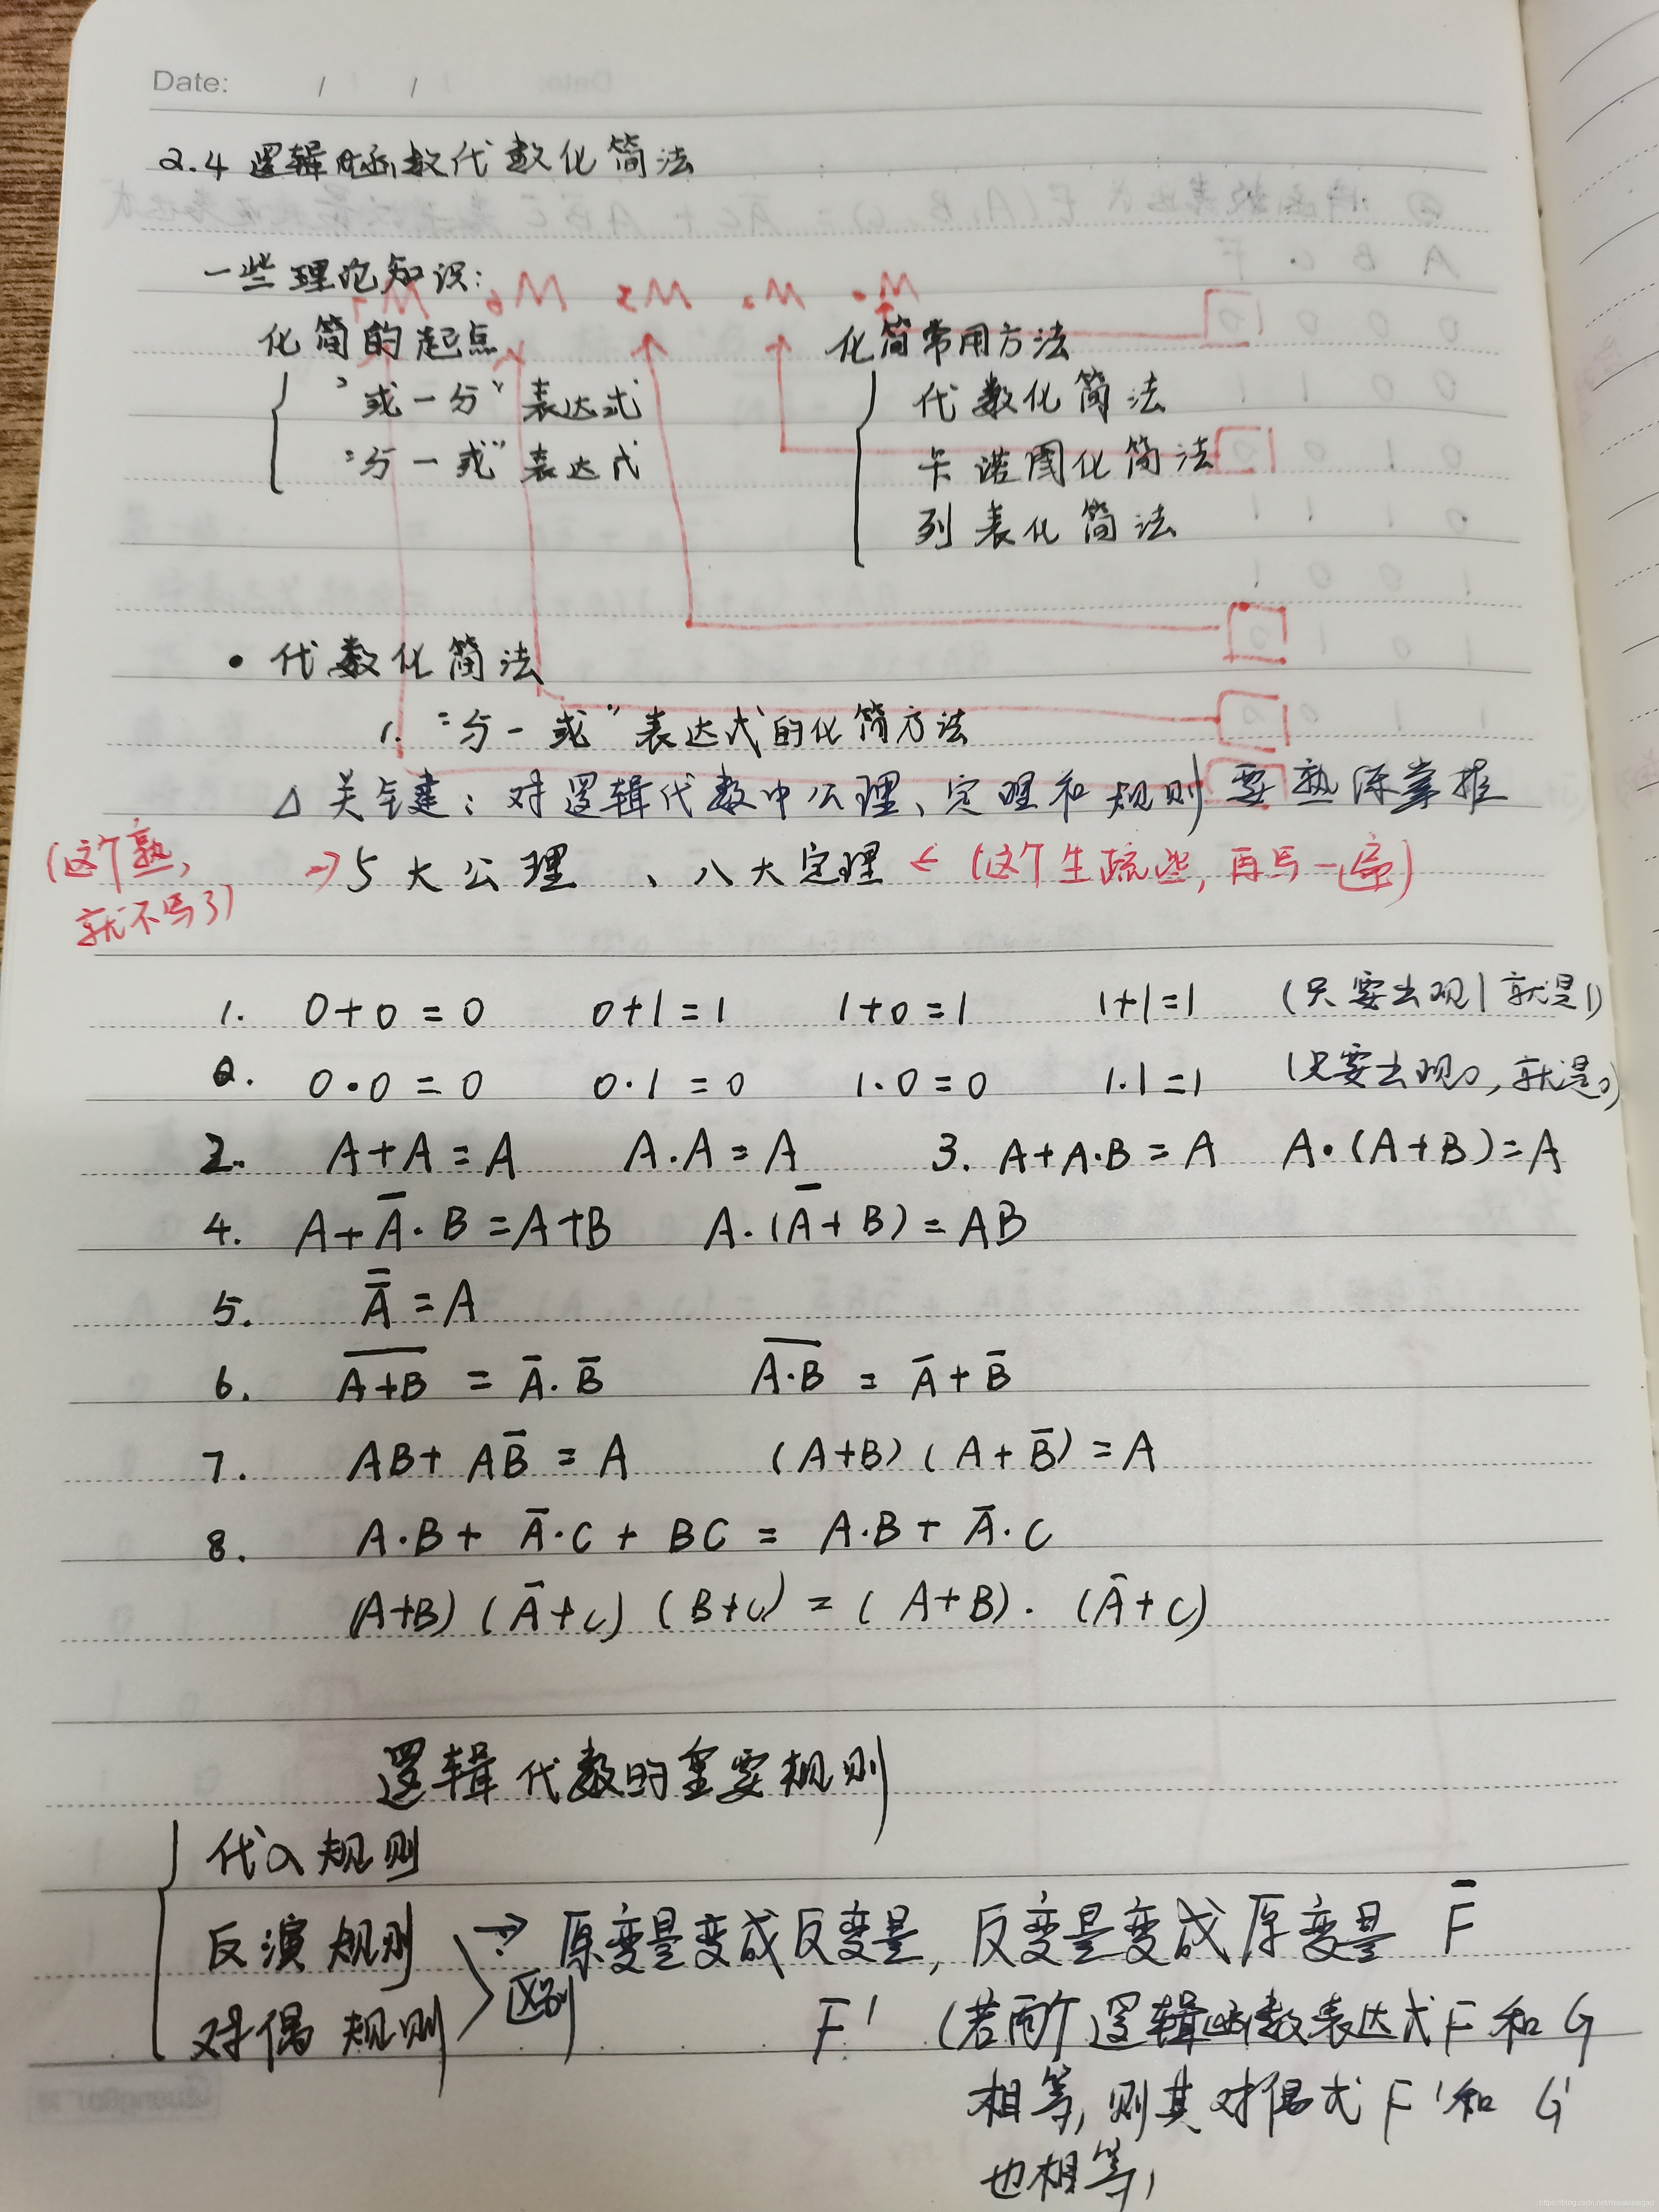 Date: / /
2.4 逻辑函数代数化简法
一些理论知识:
化简的起点
"或一与"表达式
"与一或"表达式
化简常用方法
代数化简法
卡诺图化简法
列表化简法
• 代数化简法
1. "与一或"表达式的化简方法
△ 关键: 对逻辑代数中公理、定理和规则要熟练掌握
(这个熟,
就不写了)
→ 5大公理、八大定理 ← (这个生疏些, 再写一遍)
1. 0+0=0 0+1=1 1+0=1 1+1=1 (只要出现1就是1)
2. 0·0=0 0·1=0 1·0=0 1·1=1 (只要出现0,就是0)
2. A+A=A A·A=A 3. A+A·B=A A·(A+B)=A
4. A+A̅·B=A+B A·(A̅+B)=AB
5. A̿=A
6. A̅+̅B̅ = A̅·B̅ A̅·̅B̅ = A̅+B̅
7. AB+AB̅=A (A+B)(A+B̅)=A
8. A·B+A̅·C+BC=A·B+A̅·C
(A+B)(A̅+C)(B+C)=(A+B)·(A̅+C)
逻辑代数的重要规则
代入规则
反演规则 → 原变量变成反变量, 反变量变成原变量 F̅
区别
对偶规则 F' (若两个逻辑函数表达式F和G
相等, 则其对偶式F'和G'
也相等)